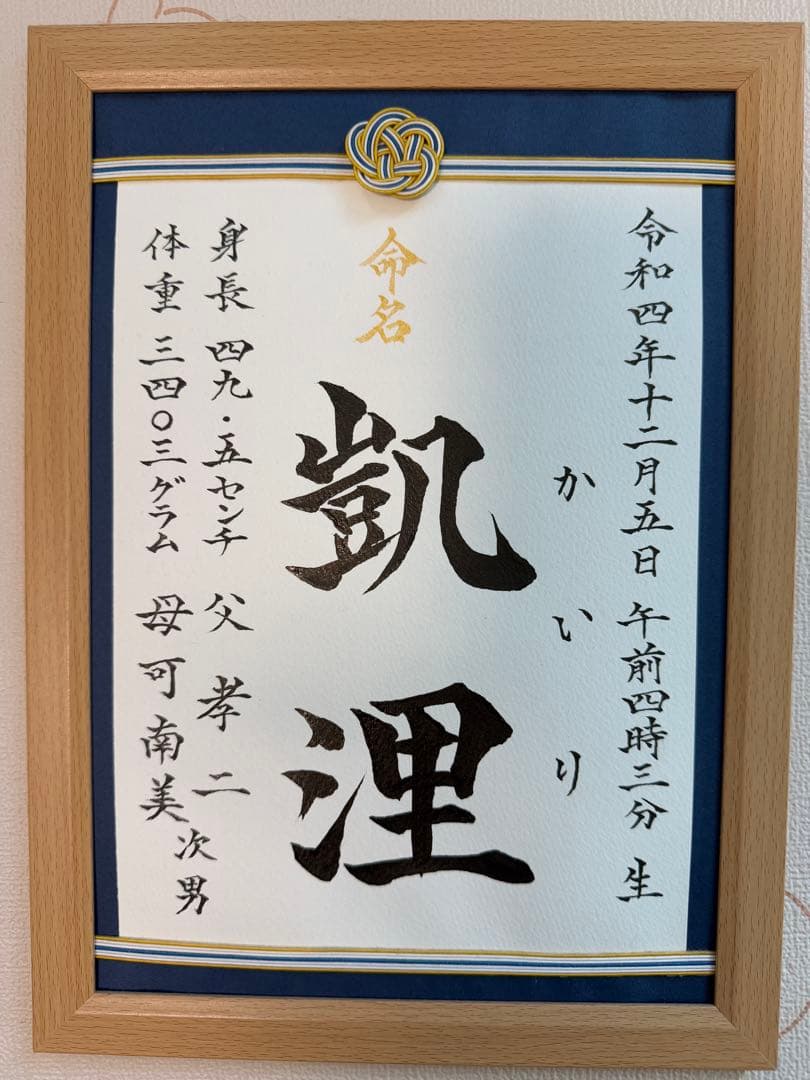 令和四年十二月五日 午前四時三分 生
かいり
命名
凱浬
身長 四九・五センチ 父 孝二
体重 三四〇三グラム 母 可南美
次男